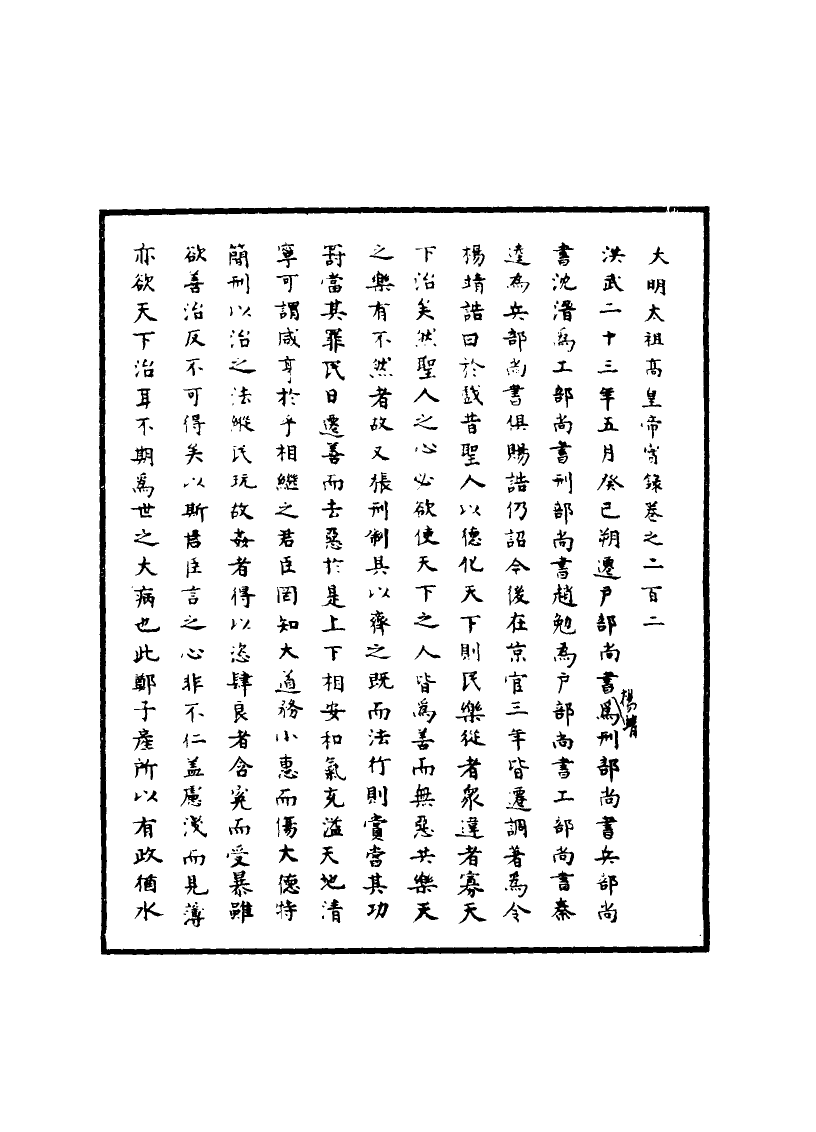 大明太祖高皇帝寔錄卷之二百二
洪武二十三年五月癸巳朔遷戶部尚書楊靖為刑部尚書兵部尚
書沈溍為工部尚書刑部尚書趙勉為戶部尚書工部尚書秦
逵為兵部尚書俱賜誥仍詔今後在京官三年皆遷調著為令
楊靖誥曰於戲昔聖人以德化天下則民樂從者衆違者寡天
下治矣然聖人之心必欲使天下之人皆為善而無惡共樂天
之樂有不然者故又張刑制具以齊之既而法行則賞當其功
罸當其罪民日遷善而去惡於是上下相安和氣充溢天地清
寧可謂咸亨於乎相繼之君臣罔知大道務小惠而傷大德特
簡刑以治之法縱民玩故姦者得以恣肆良者含寃而受暴雖
欲善治反不可得矣以斯君臣言之心非不仁盖慮淺而見薄
亦欲天下治耳不期為世之大病也此鄭子產所以有政猶水